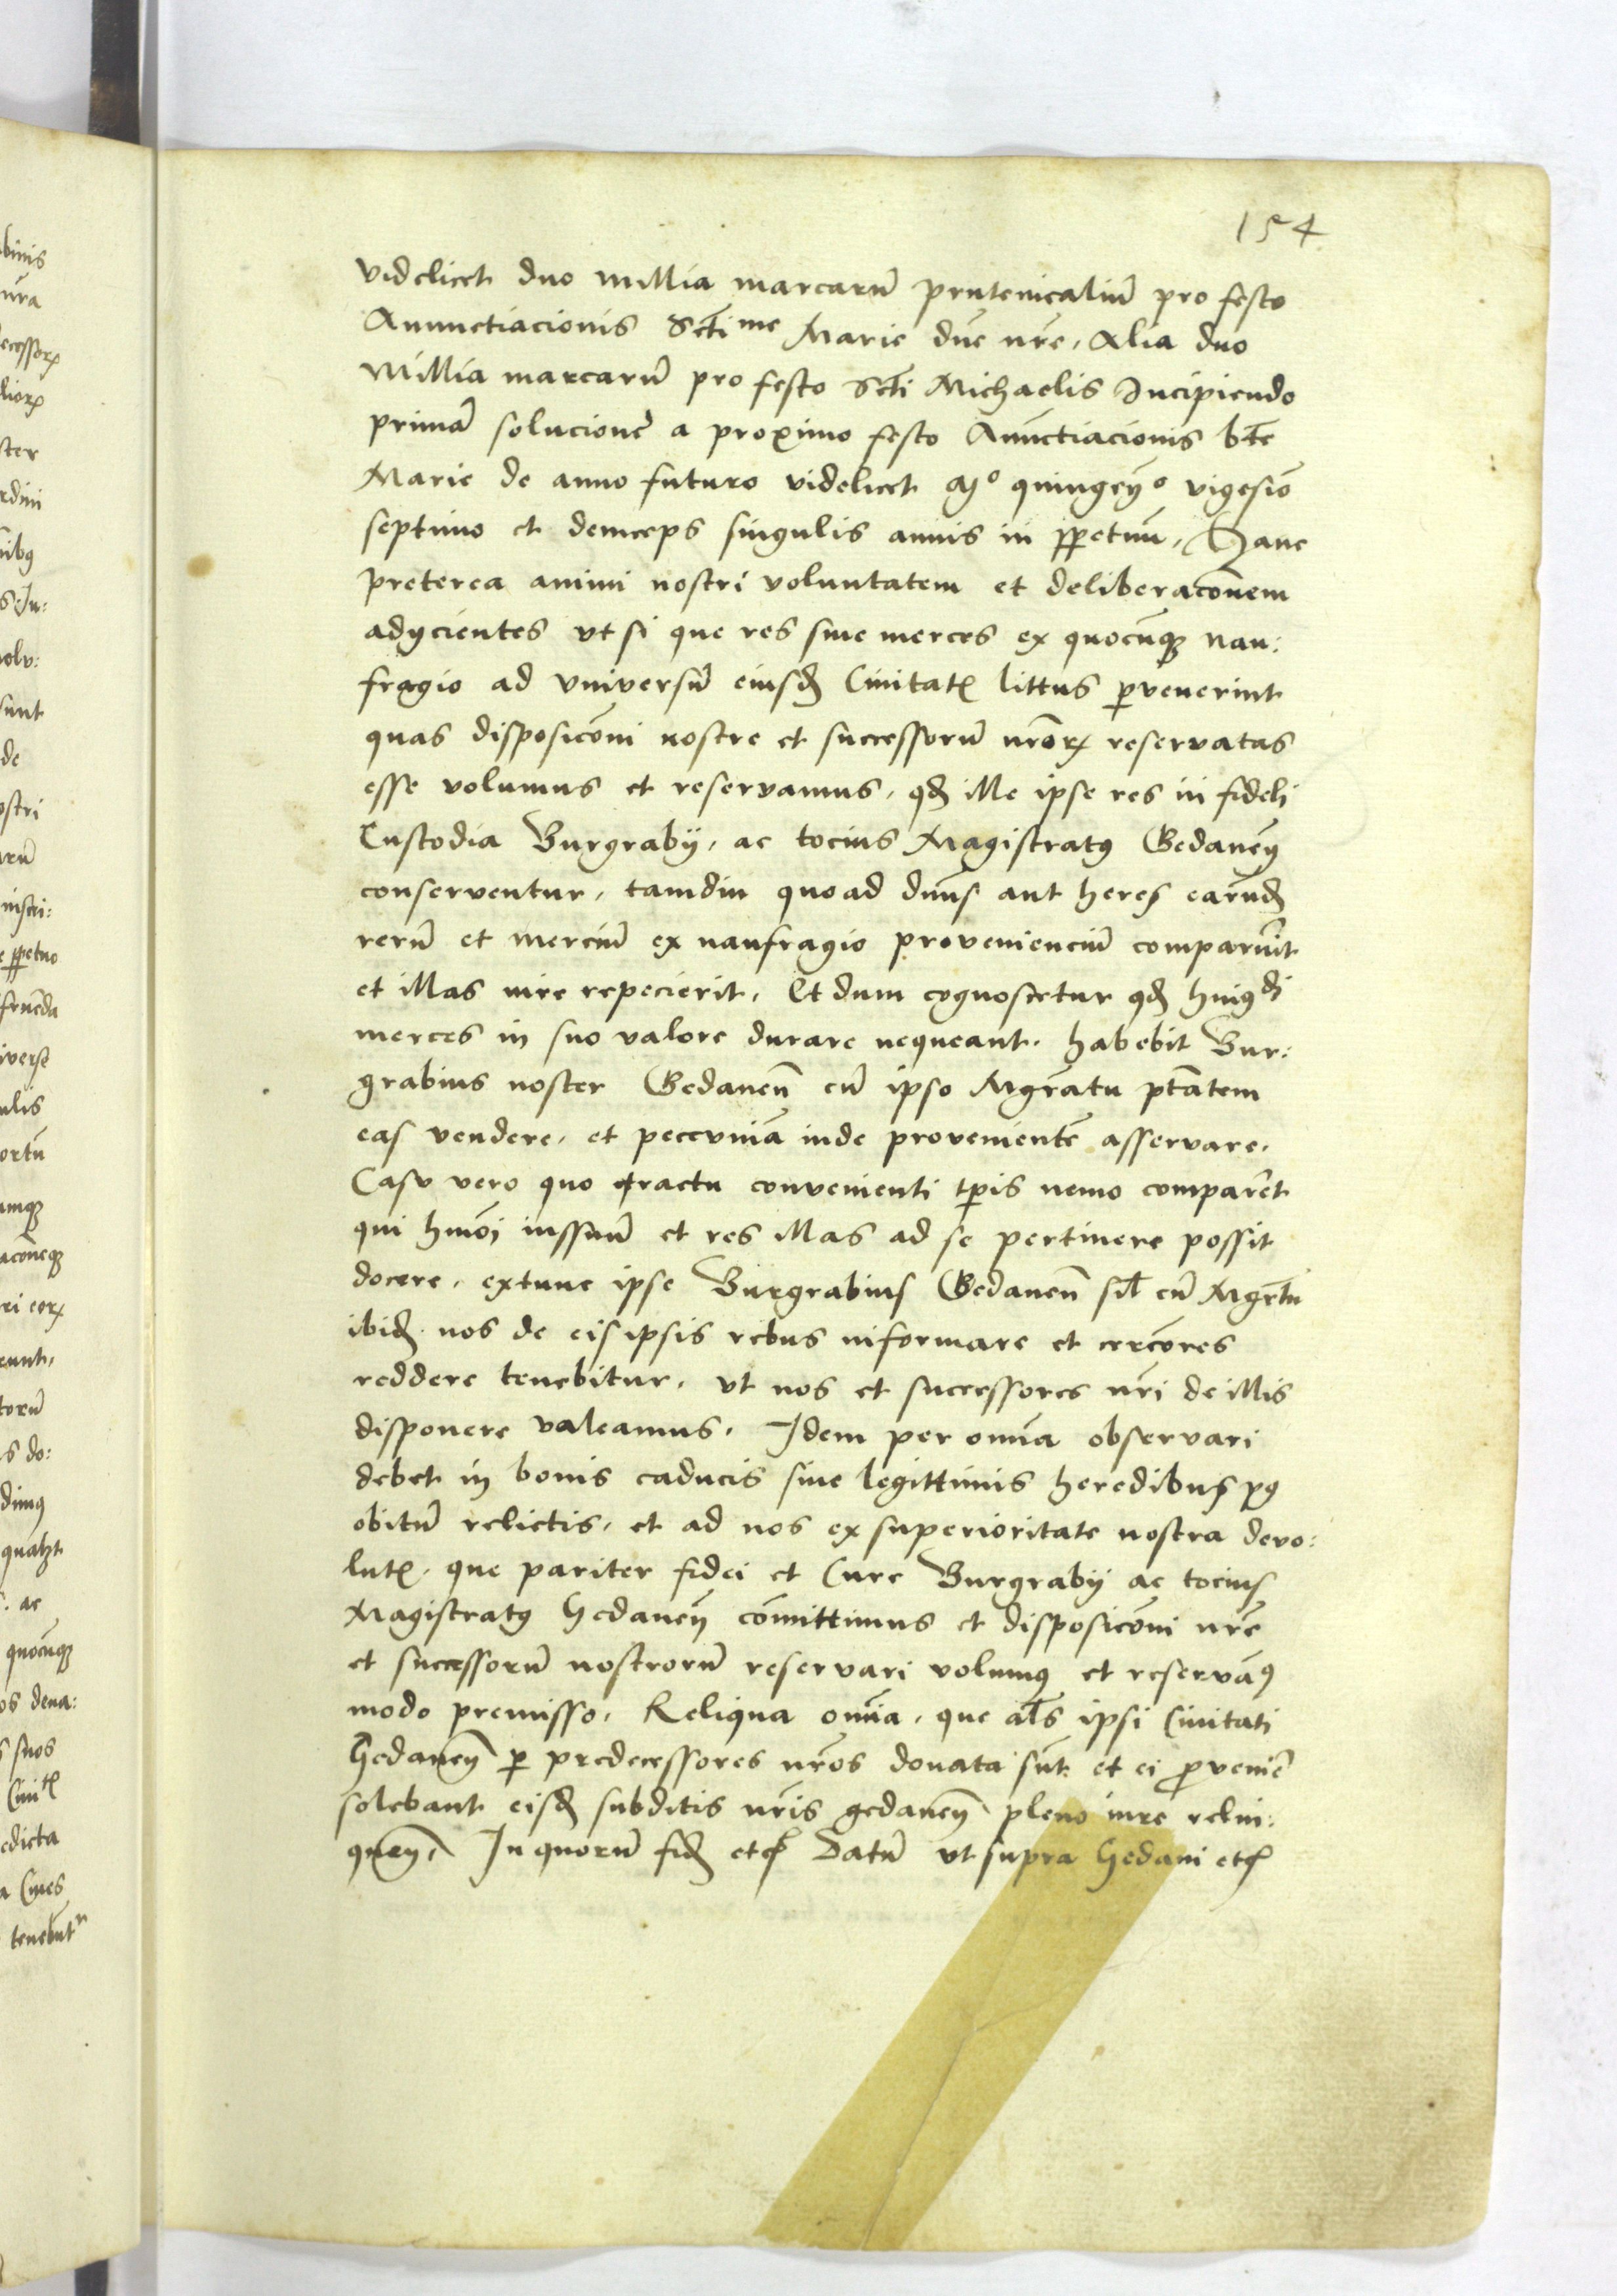 154
videlicet duo millia marcarū prutenicaliū pro festo
Annunctiacionis Sctīme Marie dnē nrē, Alia duo
Millia marcarū pro festo Scti Michaelis Incipiendo
primā solucionē a proximo festo Anunctiacionis bte
Marie de anno futuro videlicet Mº quingenº vigesiō
septimo et deinceps singulis annis in ppetuū, Hanc
preterea animi nostri voluntatem et deliberacōnem
adycientes vt si que res siue merces ex quocūqꝫ nau:
fragio ad vniversū eiusdꝫ Ciuitatꝭ littus pvenerint
quas disposicōni nostre et successorū nrōrꝝ reservatas
esse volumus et reservamus, qdꝫ ille ipse res in fideli
Custodia Burgrabij, ac tocius Magistratꝯ Gedaneñ
conserventur, tamdiu quoad dnūs aut heres earūdꝫ
rerū et merciū ex naufragio provenienciū comparuīt
et illas iure repecierit, Et dum cognoscetur qdꝫ huiꝯdi
merces in suo valore durare nequeant, habebit Bur:
grabius noster Gedaneñ cū ipso Mgrātu ptātem
eas vendere, et peccuniā inde provenientē asservare,
Casu vero quo tractu convenienti tpis nemo comparēt
qui hmōi iussuum et res illas ad se pertinere possit
docere, extunc ipse Burgrabius Gedaneñ sil cū Mgrtū
ibidꝫ nos de eis ipsis rebus informare et cerciores
reddere tenebitur, vt nos et successores nrī de illis
disponere valeamus, Idem per omīa observari
debet in bonis caducis sine legittimis heredibus pꝯ
obitū relictis, et ad nos ex superioritate nostra devo:
lutꝭ, que pariter fidei et Cure Burgrabij ac tocius
Magistratꝯ Gedaneñ cōmittimus et disposicōni nrē
et successorū nostrorū reservari volumꝯ et reservāꝯ
modo premisso, Reliqua omīa, que als ipsi Ciuitati
Gedaneñ p predecessores nrōs donata sūt et ei proveniē
solebant eisdꝫ subditis nrīs gedaneñ pleno iure relin:
quen, In quorū fidꝫ etcꝭ Datū vt supra Gedani etcꝭ